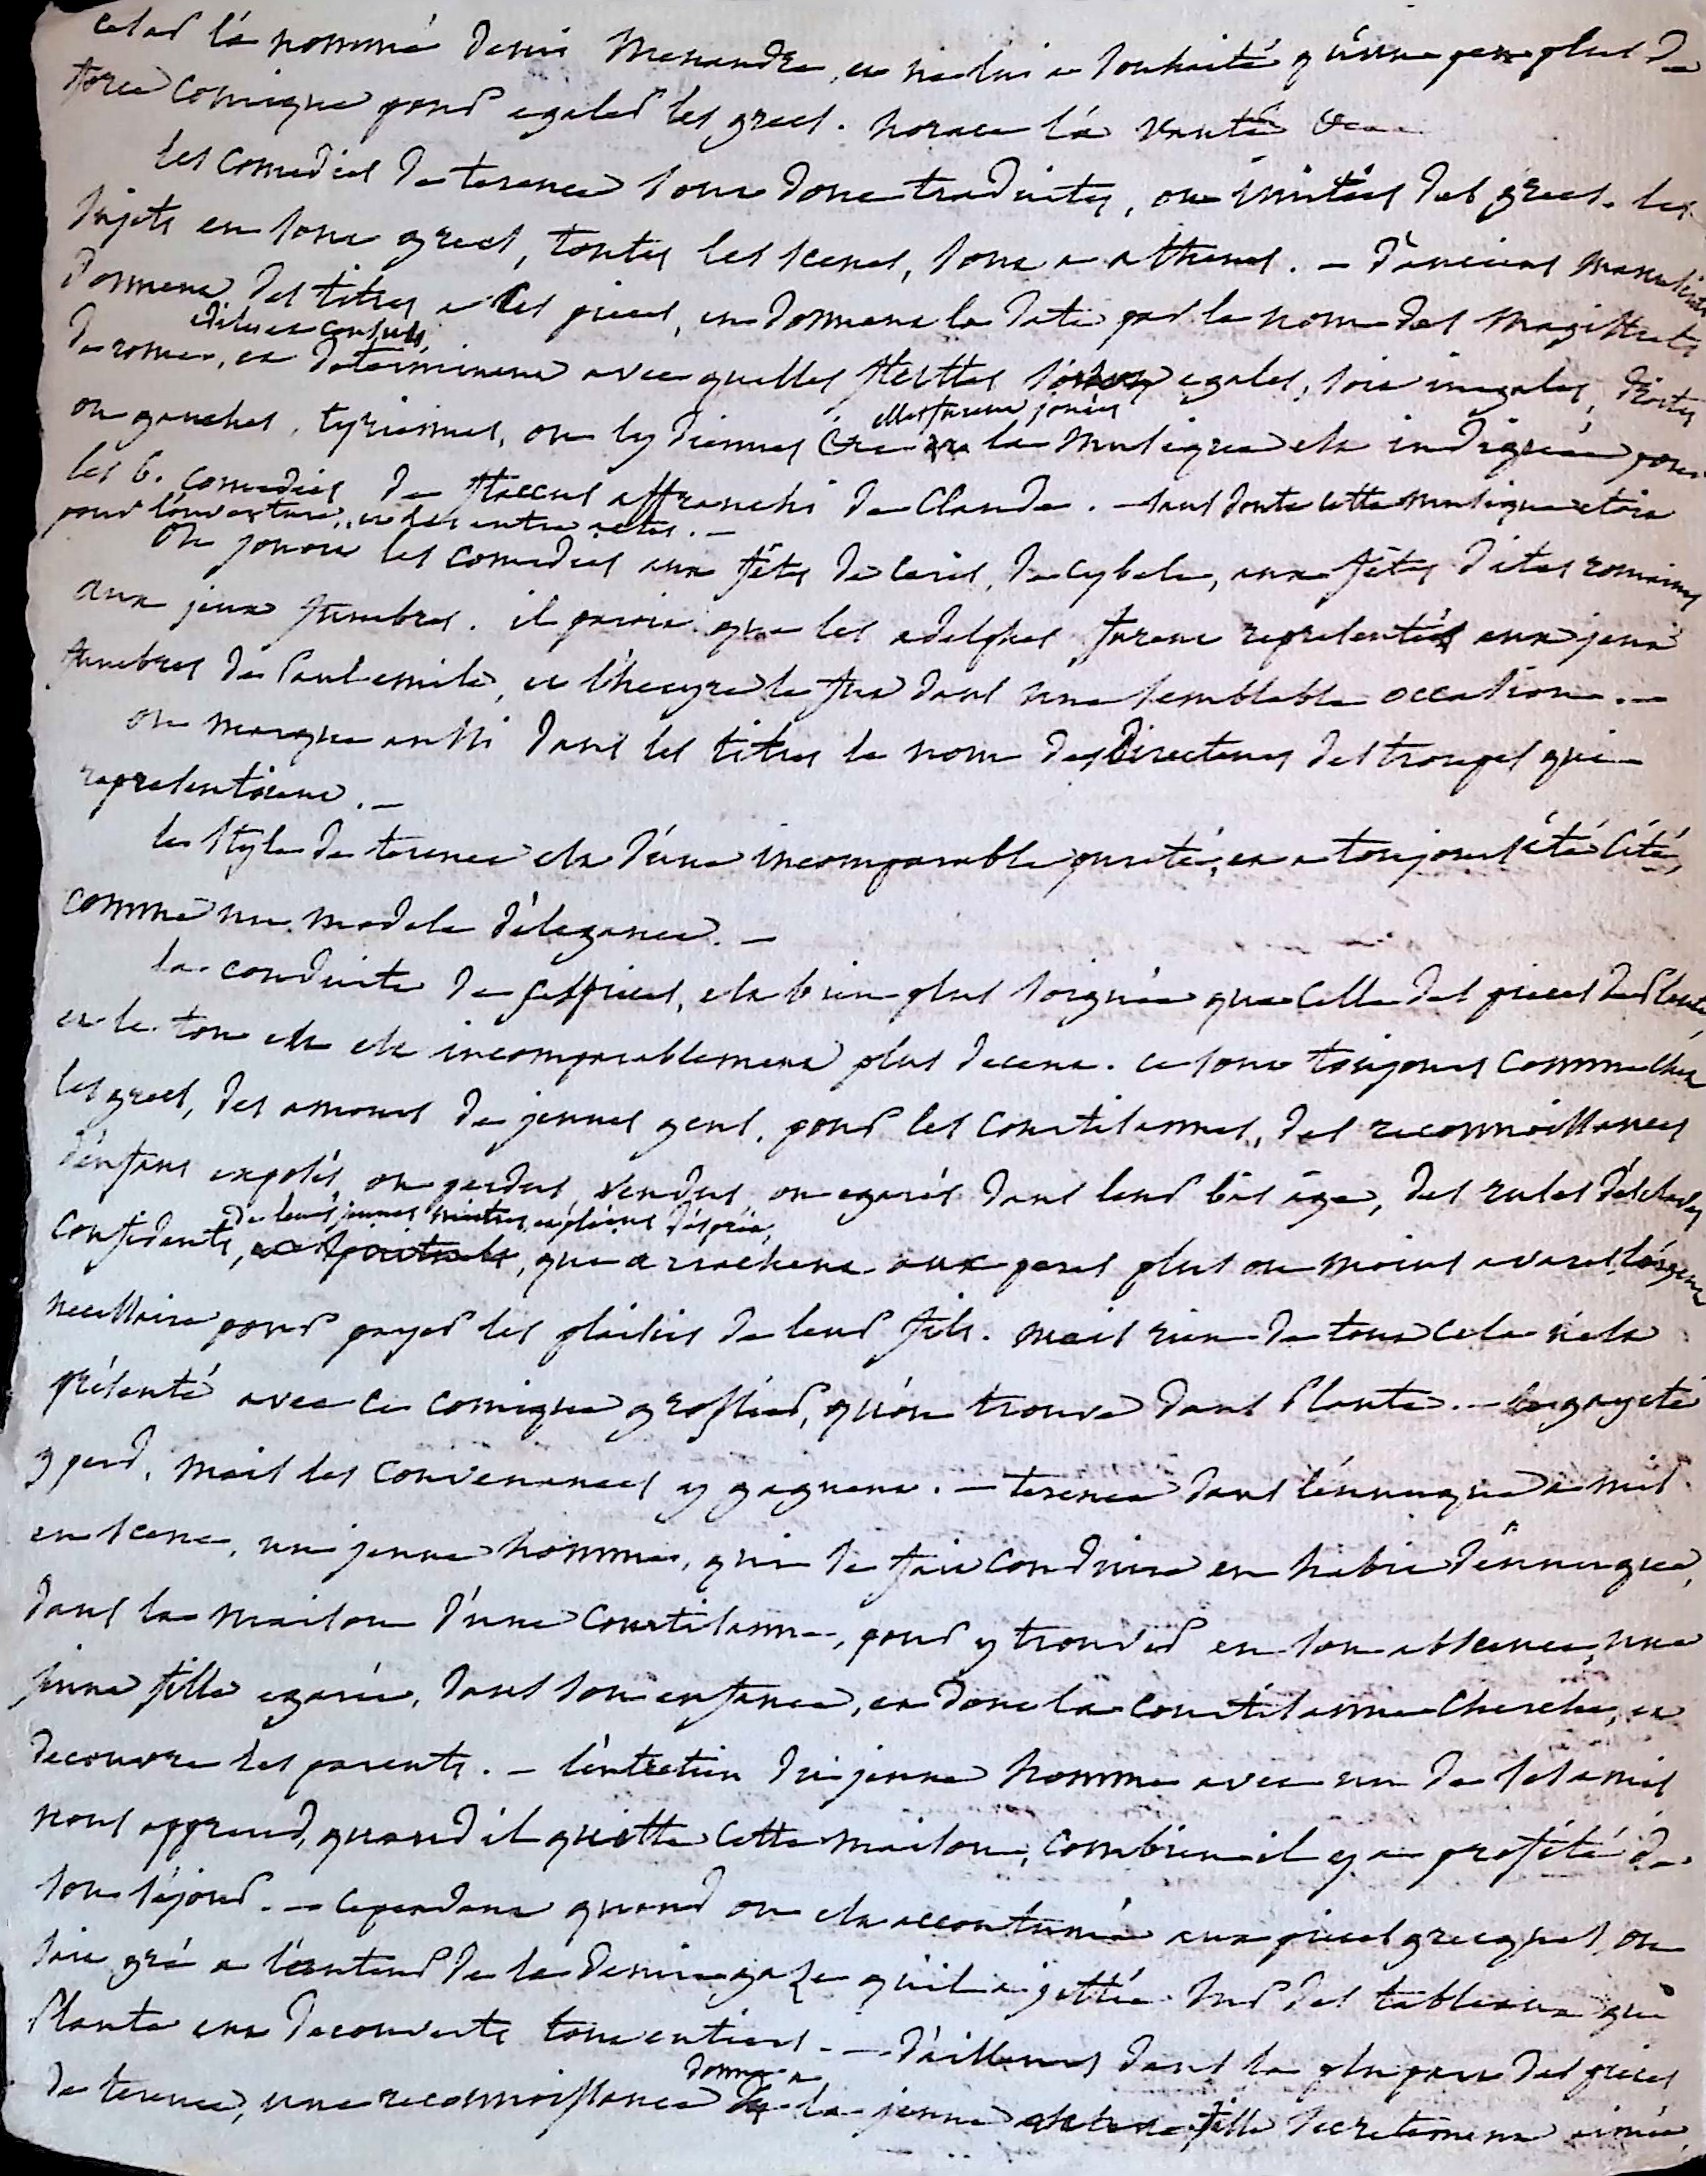 cesar l'a nommé demi Menandre, et ne lui a souhaité qu'un peu plus de
force comique pour egaler les grecs. horace l'a vanté &c.
les comedies de terence sont donc traduites, ou imitées des grecs. les
sujets en sont grecs, toutes les scenes, sont a athenes. – d'anciens manuscrits
donnent des titres a ces pieces, en donnent la date par le nom des magistrats
ediles et consuls,
de rome, et determinent avec quelles flettes soit egales, soit inegales, droites
elles furent jouées
ou gauches, tyriennes, ou lydiennes &c la musique est indiquée pour
les 6. comedies de flaccus affranchi de Claude. – sans doute cette musique etoit
pour l'ouverture, et les entre actes. –
On jouoit les comedies aux fêtes de cerès, de cybele, aux fêtes dites romaines
aux jeux funebres. il paroit que les adelphes furent representés aux jeux
funebres de Paul emile, et l'hecyre le fut dans une semblable occasion. –
on marque aussi dans les titres le nom des Directeurs des troupes qui
representoient. –
le style de terence est d'une incomparable pureté, et a toujours été cité,
comme un modele d'élegance. –
la conduite de ses pieces, est bien plus soignée que celle des pieces de Plaute,
et le ton est incomparablement plus decent. ce sont toujours comme chez
les grecs, des amours de jeunes gens, pour les courtisannes, des reconnoissances
d'enfans exposés, ou perdus, vendus, ou egarés dans leur bas âge, des ruses d'esclaves
de leurs jeunes maitres, et pleins d'esprit,
confidents, qui arrachent aux peres plus ou moins avares, l'argent
necessaire pour payer les plaisirs de leur fils. mais rien de tout cela n'est
présenté avec ce comique grossier, qu'on trouve dans Plaute. – la gayeté
y perd, mais les convenances y gagnent. – terence dans l'eunuque a mis
en scene, un jeune homme, qui se fait conduire en habit d'eunuque,
dans la maison d'une courtisanne, pour y trouver en son absence, une
jeune fille egarée, dans son enfance, et dont la courtisanne cherche, et
decouvre les parents. – l'entretien du jeune homme avec un de ses amis
nous apprend, quand il quitte cette maison, combien il y a profité de
son séjour. – cependant quand on est accoutumé aux pieces grecques, on
sait gré a l'auteur de la demie gaze qu'il a jettée sur des tableaux que
Plaute eut decouverts tout entiers. – d'ailleurs dans la plupart des pieces
donne a
de terence, une reconnoissance la jeune fille secretement aimée,